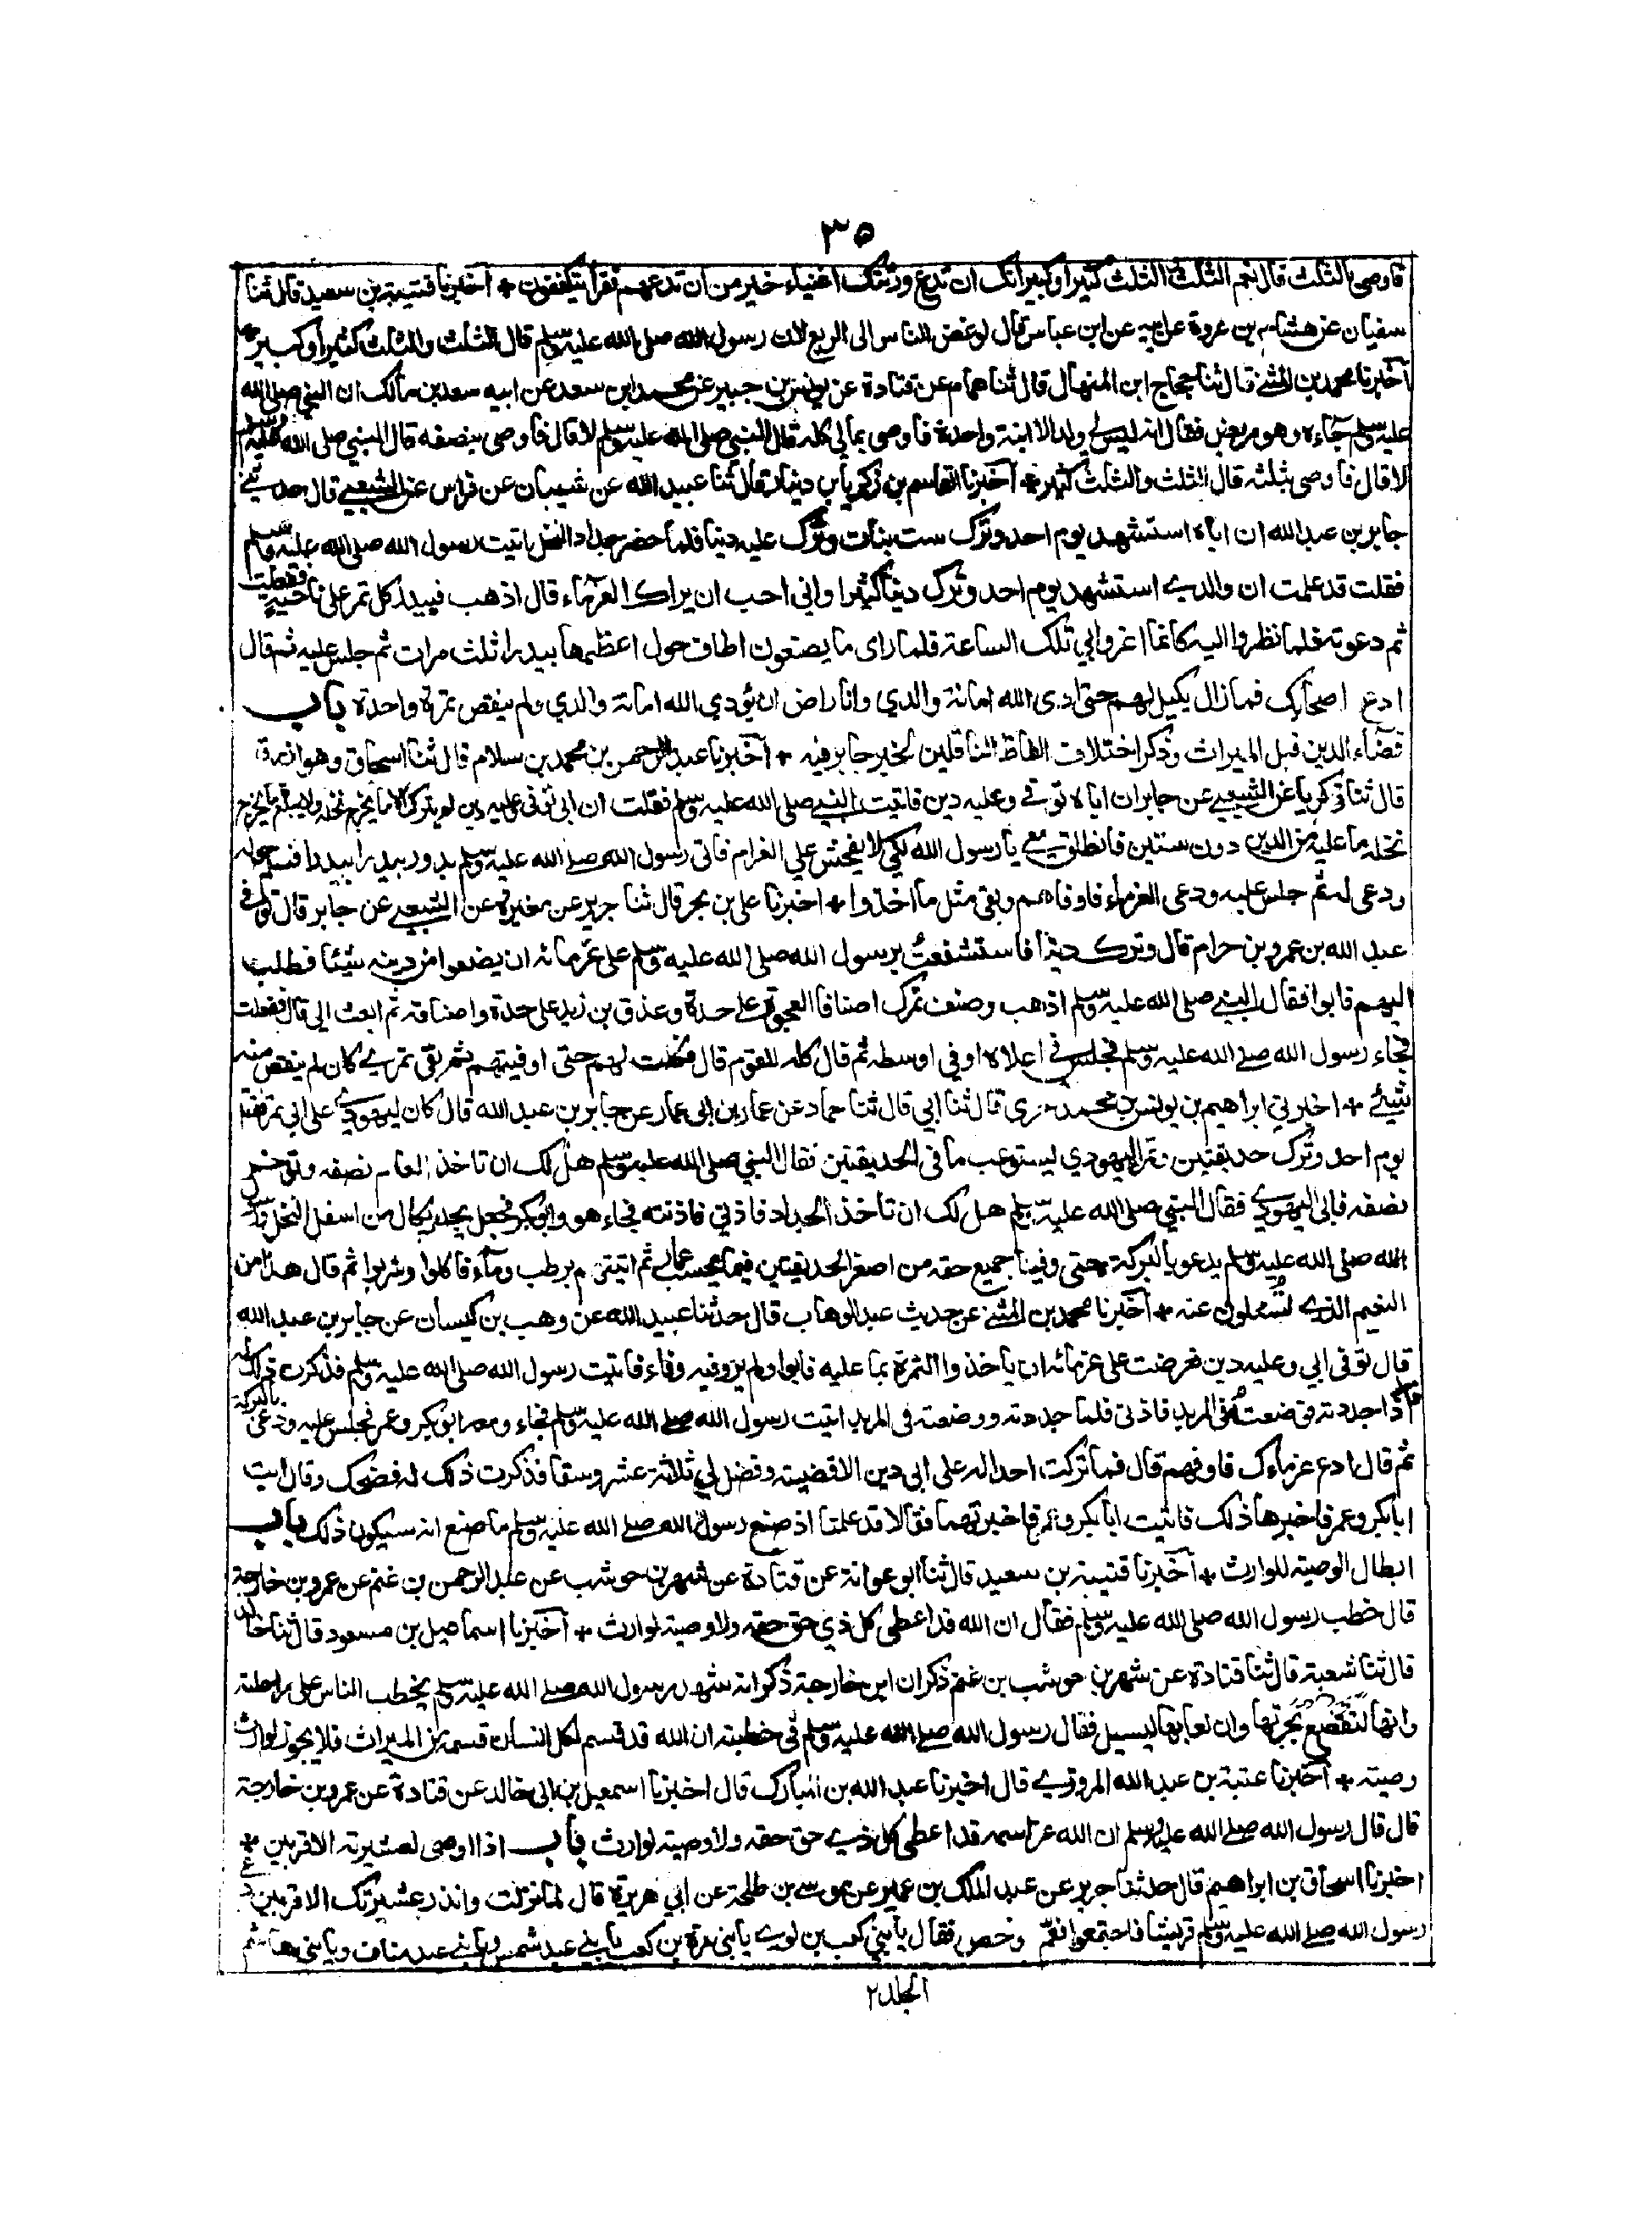 ٣٥
فاوصي بالثلث قال نعم الثلث الثلث كثير او كبير انك ان تدع ورثتك اغنياء خير من ان تدعهم فقراء يتكففون + اخبرنا قتيبة بن سعيد قال ثنا
سفيان عن هشام بن عروة عن ابيه عن ابن عباس قال لو غض الناس الى الربع لان رسول الله صلى الله عليه وسلم قال الثلث والثلث كثير او كبير
اخبرنا محمد بن المثنى قال ثنا حجاج ابن المنهال قال ثنا همام عن قتادة عن يونس بن جبير عن محمد ابن سعد عن ابيه سعد بن مالك ان النبي صلى الله
عليه وسلم جاءه وهو مريض فقال انه ليس لي ولد الا ابنة واحدة فاوصي بمالي كله قال النبي صلى الله عليه وسلم لا قال فاوصي بنصفه قال النبي صلى الله عليه وسلم
لا قال فاوصي بثلثه قال الثلث والثلث كثير + اخبرنا القاسم بن زكريا بن دينار قال ثنا عبيد الله عن شيبان عن فراس عن الشعبي قال حدثني
جابر بن عبد الله ان اباه استشهد يوم احد وترك ست بنات وترك عليه دينا فلما حضر جداد النخل اتيت رسول الله صلى الله عليه وسلم
فقلت قد علمت ان والدي استشهد يوم احد وترك دينا كثيرا واني احب ان يراك الغرماء قال اذهب فبيدر كل تمر على ناحية ففعلت
ثم دعوته فلما نظروا اليه كانما اغروا بي تلك الساعة فلما راى ما يصنعون اطاف حول اعظمها بيدرا ثلث مرات ثم جلس عليه ثم قال
ادع اصحابك فما زال يكيل لهم حتى ادى الله امانة والدي وانا راض ان يؤدي الله امانة والدي ولم ينقص تمرة واحدة باب
قضاء الدين قبل الميراث وذكر اختلاف الفاظ الناقلين لخبر جابر فيه + اخبرنا عبد الرحمن بن محمد بن سلام قال ثنا اسحاق وهو الازرق
قال ثنا زكريا عن الشعبي عن جابر ان اباه توفي وعليه دين فاتيت النبي صلى الله عليه وسلم فقلت ان ابي توفي وعليه دين لم يترك الا ما يخرج نخله ولا يبلغ ما يخرج
نخله ما عليه من الدين دون سنتين فانطلق معي يا رسول الله لكي لا يفحش علي الغرام فاتى رسول الله صلى الله عليه وسلم يدور بيدرا بيدرا فسلم حوله
ودعى له ثم جلس عليه ودعى الغرماء فاوفاهم وبقي مثل ما اخذوا + اخبرنا علي بن حجر قال ثنا جرير عن مغيرة عن الشعبي عن جابر قال توفي
عبد الله بن عمرو بن حرام قال وترك دينا فاستشفعت برسول الله صلى الله عليه وسلم على غرمائه ان يضعوا من دينه شيئا فطلب
اليهم فابوا فقال النبي صلى الله عليه وسلم اذهب وصنف تمرك اصنافا العجوة على حدة وعذق بن زيد على حدة واصنافه ثم ابعث الي قال ففعلت
فجاء رسول الله صلى الله عليه وسلم فجلس في اعلاه او في اوسطه ثم قال كله للقوم قال فكلت لهم حتى اوفيتهم ثم بقي تمري كان لم ينقص منه
شيئ + اخبرني ابراهيم بن يونس بن محمد حرمي قال ثنا ابي قال ثنا حماد عن عمار بن ابي عمار عن جابر بن عبد الله قال كان ليهودي على ابي تمر فقتل
يوم احد وترك حديقتين وتمر اليهودي يستوعب ما في الحديقتين فقال النبي صلى الله عليه وسلم هل لك ان تاخذ العام نصفه وتؤخر
نصفه فابى اليهودي فقال النبي صلى الله عليه وسلم هل لك ان تاخذ الجداد فاذني فاذنته فجاء هو وابو بكر فجعل يجد ويكال من اسفل النخل ورسول
الله صلى الله عليه وسلم يدعو بالبركة حتى وفينا جميع حقه من اصغر الحديقتين فيما يحسب عمار ثم اتيتهم برطب وماء فاكلوا وشربوا ثم قال هذا من
النعيم الذي تسئلون عنه + اخبرنا محمد بن المثنى عن حديث عبد الوهاب قال حدثنا عبيد الله عن وهب بن كيسان عن جابر بن عبد الله
قال توفي ابي وعليه دين فعرضت على غرمائه ان ياخذوا الثمرة بما عليه فابوا ولم يروفيه وفاء فاتيت رسول الله صلى الله عليه وسلم فذكرت ذلك له
قال اذا جددته فوضعته في المربد فاذني فلما جددته ووضعته في المربد اتيت رسول الله صلى الله عليه وسلم فجاء ومعه ابو بكر وعمر فجلس عليه ودعى بالبركة
ثم قال ادع غرماءك فاوفهم قال فما تركت احدا له على ابي دين الا قضيته وفضل لي ثلاثة عشر وسقا فذكرت ذلك له فضحك وقال ايت
ابا بكر وعمر فاخبرهما ذلك فاتيت ابا بكر وعمر فاخبرتهما فقالا قد علمنا اذ صنع رسول الله صلى الله عليه وسلم ما صنع انه سيكون ذلك باب
ابطال الوصية للوارث + اخبرنا قتيبة بن سعيد قال ثنا ابو عوانة عن قتادة عن شهر بن حوشب عن عبد الرحمن بن غنم عن عمرو بن خارجة
قال خطب رسول الله صلى الله عليه وسلم فقال ان الله قد اعطى كل ذي حق حقه ولا وصية لوارث + اخبرنا اسماعيل بن مسعود قال ثنا خالد
قال ثنا شعبة قال ثنا قتادة عن شهر بن حوشب بن غنم ذكر ان ابن خارجة ذكر انه شهد رسول الله صلى الله عليه وسلم يخطب الناس على راحلته
وانها لتقصع بجرتها وان لعابها ليسيل فقال رسول الله صلى الله عليه وسلم في خطبته ان الله قد قسم لكل انسان قسمه من الميراث فلا يجوز لوارث
وصية + اخبرنا عتبة بن عبد الله المروزي قال اخبرنا عبد الله بن المبارك قال اخبرنا اسمعيل بن ابي خالد عن قتادة عن عمرو بن خارجة
قال قال رسول الله صلى الله عليه وسلم ان الله عز اسمه قد اعطى كل ذي حق حقه ولا وصية لوارث باب اذا اوصى لعشيرته الاقربين +
اخبرنا اسحاق بن ابراهيم قال حدثنا جرير عن عبد الملك بن عمير عن موسى بن طلحة عن ابي هريرة قال لما نزلت وانذر عشيرتك الاقربين
رسول الله صلى الله عليه وسلم قريشا فاجتمعوا فعم وخص فقال يا بني كعب بن لوي يا بني مرة بن كعب يا بني عبد شمس ويا بني عبد مناف ويا بني هاشم
الجلد ٢